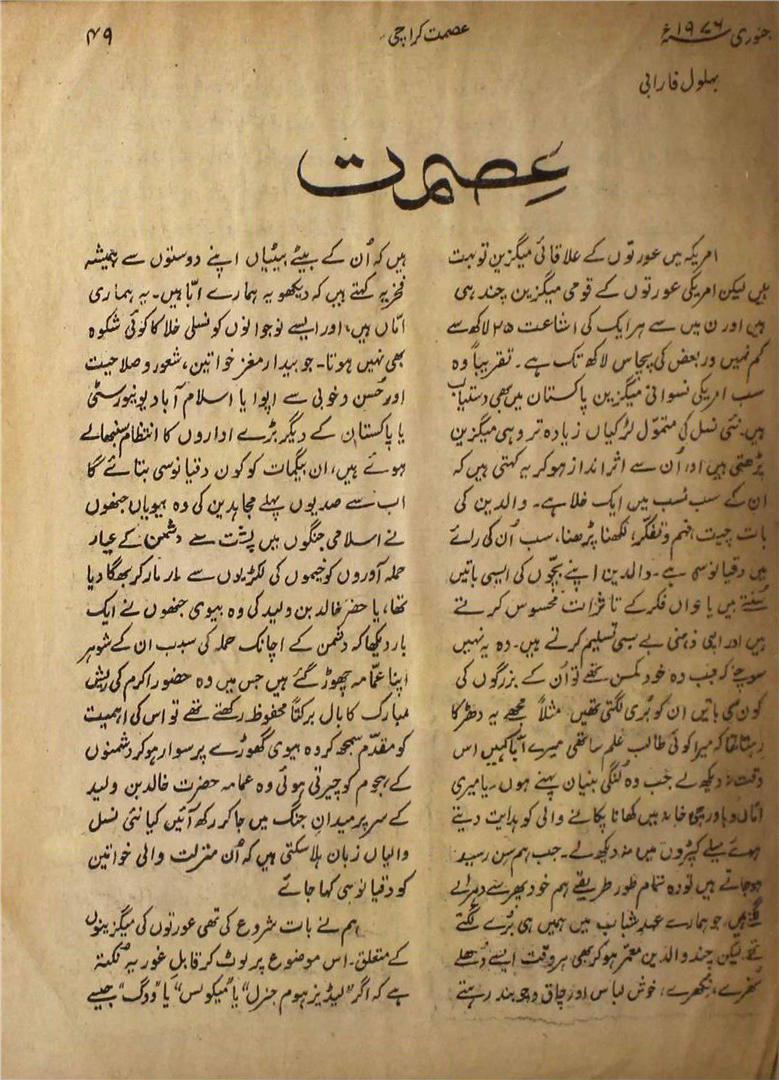 جنوری ۱۹۷۶ء
عصمت کراچی
۴۹
بہلول فارابی
عصمت
امریکہ میں عورتوں کے علاقائی میگزین تو بہت
ہیں لیکن امریکی عورتوں کے قومی میگزین چند ہی
ہیں اور ن میں سے ہر ایک کی اشاعت ۲۵ لاکھ سے
کم نہیں ور بعض کی پچاس لاکھ تک ہے۔ تقریباً وہ
سب امریکی نسوانی میگزین پاکستان میں بھی دستیاب
ہیں۔ نئی نسل کی متموّل لڑکیاں زیادہ تر وہی میگزین
پڑھتی ہیں اور اُن سے اثر انداز ہو کر یہ کہتی ہیں کہ
ان کے سب نسب میں ایک خلا ہے۔ والدین کی
بات چیت، فہم و تفکّر، لکھنا پڑھنا، سب اُن کی رائے
میں دقیانوسی ہے۔ والدین اپنے بچّوں کی ایسی باتیں
سُنتے ہیں یا واں فکر کے تاثرات محسوس کرتے
ہیں اور اپنی ذہنی بے بسی تسلیم کرتے ہیں۔ وہ یہ نہیں
سوچتے کہ جب وہ خود کمسن تھے تو اُن کے بزرگوں کی
کون سی باتیں ان کو بُری لگتی تھیں مثلاً مجھے یہ دھڑکا
رہتا تھا کہ میرا کوئی طالب علم ساتھی میرے ابّا کہیں اس
وقت نہ دیکھ لے جب وہ لُنگی بنیان پہنے ہوں۔ یا میری
امّاں کو باورچی خانہ میں کھانا پکانے والی کو ہدایت دیتے
ہوئے میلے کپڑوں میں نہ دیکھ لے۔ جب ہم سن رسیدہ
ہو جاتے ہیں تو وہ تمام طور طریقے ہم خود پھر سے دہرانے
لگتے ہیں، جو ہمارے عہدِ شباب میں ہمیں ہی بُرے لگتے
تھے لیکن چند والدین معمّر ہو کر بھی ہر وقت ایسے دُھلے
نکھرے، خوش لباس اور چاق و چوبند رہتے
ہیں کہ اُن کے بیٹے بیٹیاں اپنے دوستوں سے ہمیشہ
فخریہ کہتے ہیں کہ دیکھو یہ ہمارے ابّا ہیں۔ یہ ہماری
امّاں ہیں، اور ایسے نوجوانوں کو نسلی خلا کا کوئی شکوہ
بھی نہیں ہوتا۔ جو بیدار مغز خواتین، شعور و صلاحیت
اور حُسن و خوبی سے اپوا یا اسلام آباد یونیورسٹی
یا پاکستان کے دیگر بڑے اداروں کا انتظام سنبھالے
ہوئے ہیں، ان بیگمات کو کون دقیانوسی بتائے گا
اب سے صدیوں پہلے مجاہدین کی وہ بیویاں جنھوں
نے اسلامی جنگوں میں پشت سے دشمن کے عیار
حملہ آوروں کو خیموں کی لکڑیوں سے مار مار کر بھگا دیا
تھا، یا حضرت خالد بن ولید کی وہ بیوی جنھوں نے ایک
بار دیکھا کہ دشمن کے اچانک حملہ کی سبب ان کے شوہر
اپنا عمّامہ چھوڑ گئے ہیں جس میں وہ حضور اکرم کی ریش
مبارک کا بال برکتاً محفوظ رکھتے تھے تو اس کی اہمیت
کو مقدّم سمجھ کر وہ بیوی گھوڑے پر سوار ہو کر دشمنوں
کے ہجوم کو چیرتی ہوئی وہ عمامہ حضرت خالد بن ولید
کے سر پر میدانِ جنگ میں جا کر رکھ آئیں کیا نئی نسل
والیاں زبان ہلا سکتی ہیں کہ اُن منزلت والی خواتین
کو دقیانوسی کہا جائے
ہم نے بات شروع کی تھی عورتوں کی میگزینوں
کے متعلق۔ اس موضوع پر لوٹ کر قابلِ غور یہ نکتہ
ہے کہ اگر "لیڈیز ہوم جنرل" یا "میکوئس" یا "ووگ" جیسے